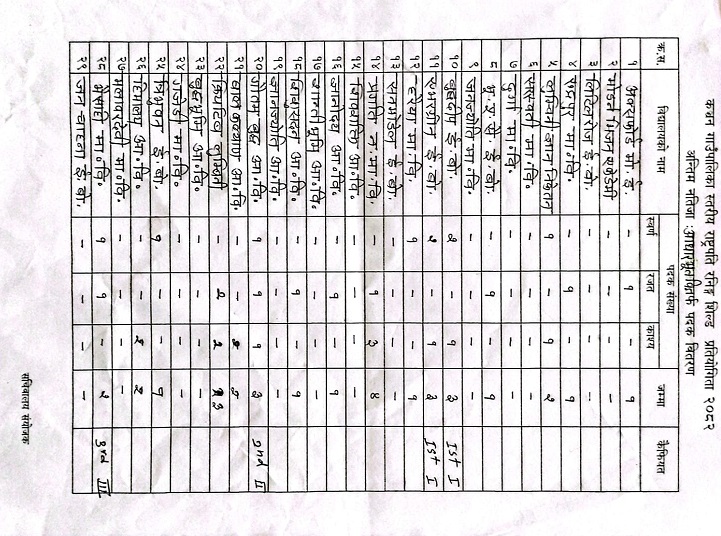 कञ्चन गाउँपालिका स्तरीय राष्ट्रपति रनिङ्ग शिल्ड प्रतियोगिता २०८२
अन्तिम नतिजा :आधारभूततर्फ पदक वितरण
क्र.स. विद्यालयको नाम पदक संख्या जम्मा कैफियत
स्वर्ण रजत कास्य
१ अक्सफोर्ड मो. ई. - १ - १
२ मोडर्न भिजन एकेडेमी - - - -
३ लिटिलरोज ई. बो. - - - -
४ रुद्रपुर मा.वि. - १ - १
५ लुम्बिनी ज्ञान निकेतन १ - १ २
६ सरस्वती मा.वि. - - - -
७ दुर्गा मा.वि. - - - -
८ यु. ए. से ई. बो. - १ - १
९ जनज्योति मा.वि. - - - -
१० बुद्धदीप ई. बो. २ - १ ३ Ist I
११ एभरग्रीन ई. बो. २ - १ ३ Ist I
१२ हरैया मा.वि. १ - - १
१३ सनमाडेल ई. बो. - - - -
१४ प्रगति न. मा. वि. - १ ३ ४
१५ शिवशक्ति मा.वि. - - - -
१६ ज्ञानोदय आ.वि. - १ - १
१७ ज्ञानभूमि आ.वि. - - - -
१८ आ.वि. - १ - १
१९ ज्ञानज्योति आ.वि. - - - -
२० गौतम बुद्ध आ.वि. १ १ १ ३ 2nd II
२१ बाल कल्याण आ.वि. - -
२२ क्रियटिव लुम्बिनी - २ २
२३ बुद्धभूमि आ.वि. - - - -
२४ मा.वि. - - - -
२५ त्रिभुवन ई. बो. १ - - १
२६ हिमालय आ.वि. - - २ २
२७ मा.वि. - - - -
२८ भैंसाही मा.वि. १ १ - २ 3rd III
२९ जन चाहना ई. बो. - - - -
सचिवालय संयोजक